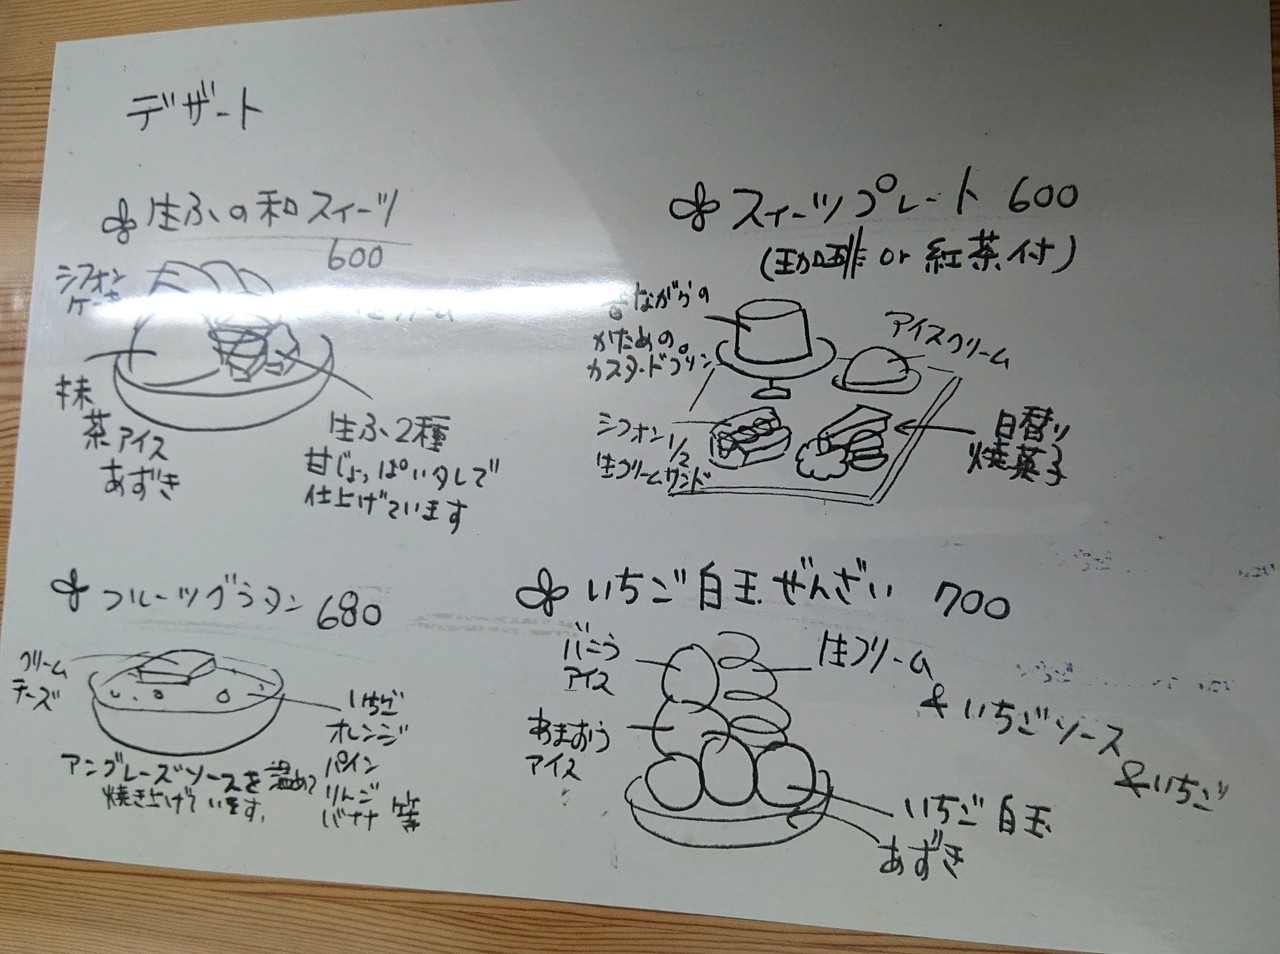 デザート
生ふの和スイーツ
600
シフォン
ケーキ
生クリーム
抹
茶アイス
あずき
生ふ2種
甘じょっぱいタレで
仕上げています
スイーツプレート 600
(珈琲 or 紅茶付)
昔ながらの
かためもの。
カスタードプリン
アイスクリーム
シフォン1/2
生クリームサンド
日替り
焼菓子
フルーツグラタン 680
クリーム
チーズ
いちご
オレンジ
パイン
りんご
バナナ 等
アングレーズソースを温めて
焼き上げています。
いちご白玉ぜんざい 700
バニラ
アイス
あまおう
アイス
生クリーム
&いちごソース
&いちご
いちご白玉
あずき